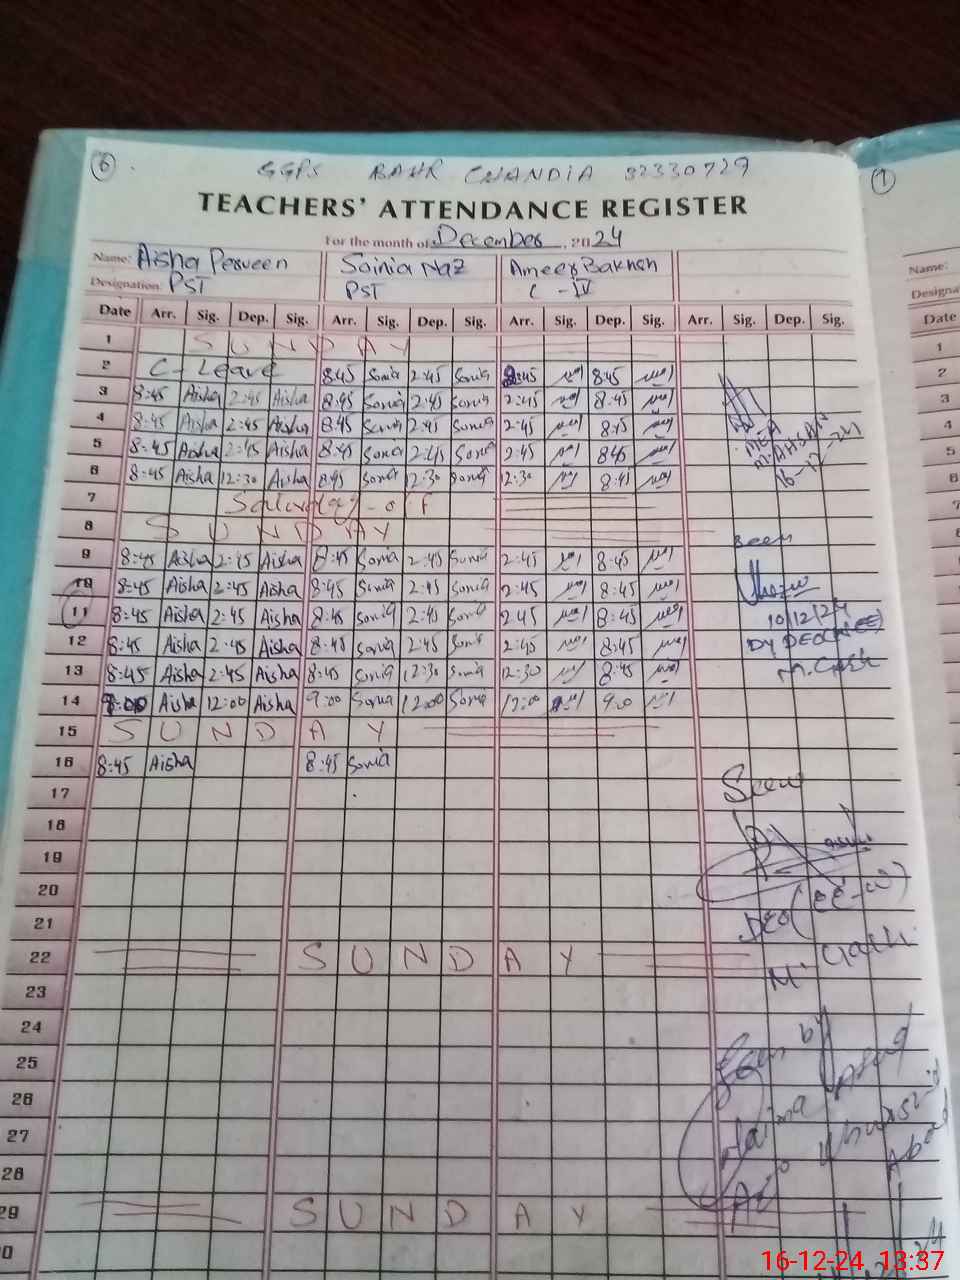 6
GGPS BAHR CHANDIA 32330729
1
TEACHERS' ATTENDANCE REGISTER
For the month of December, 2024
Name: Aisha Perveen Sainia Naz Ameer Bakhsh
Designation: PST PST C-IV
Date Arr. Sig. Dep. Sig. Arr. Sig. Dep. Sig. Arr. Sig. Dep. Sig. Arr. Sig. Dep. Sig.
1 SUNDAY
2 C-Leave 8:45 Sonia 2:45 Sonia 2:45 8:45
3 8:45 Aisha 2:45 Aisha 8:45 Sonia 2:45 Sonia 2:45 8:45
4 8:45 Aisha 2:45 Aisha 8:45 Sonia 2:45 Sonia 2:45 8:45
5 8:45 Aisha 2:45 Aisha 8:45 Sonia 2:45 Sonia 2:45 8:45
6 8:45 Aisha 12:30 Aisha 8:45 Sonia 12:30 Sonia 12:30 8:45
7 Saturday - off
8 SUNDAY
9 8:45 Aisha 2:45 Aisha 8:45 Sonia 2:45 Sonia 2:45 8:45
10 8:45 Aisha 2:45 Aisha 8:45 Sonia 2:45 Sonia 2:45 8:45
11 8:45 Aisha 2:45 Aisha 8:45 Sonia 2:45 Sonia 2:45 8:45
12 8:45 Aisha 2:45 Aisha 8:45 Sonia 2:45 Sonia 2:45 8:45
13 8:45 Aisha 2:45 Aisha 8:45 Sonia 12:30 Sonia 12:30 8:45
14 9:00 Aisha 12:00 Aisha 9:00 Sonia 12:00 Sonia 12:00 9:0
15 SUNDAY
16 8:45 Aisha 8:45 Sonia
17
18
19
20
21
22 SUNDAY
23
24
25
26
27
28
29 SUNDAY
30
MEA
M. AHSAN
16-12-24
Seen
10/12/24
DY DEO
M. Garh
Seen
DEO (EE-W)
M. Garh
Seen by
Name:
Designa
Date
1
2
3
4
5
6
7
8
9
10
11
12
13
14
15
16-12-24 13:37